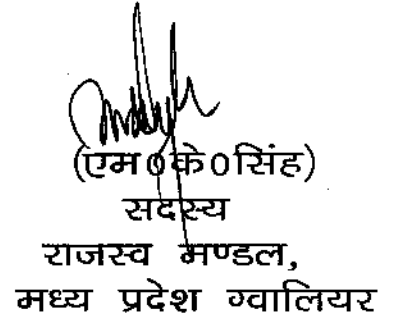 (एम0के0सिंह)
सदस्य
राजस्व मण्डल,
मध्य प्रदेश ग्वालियर